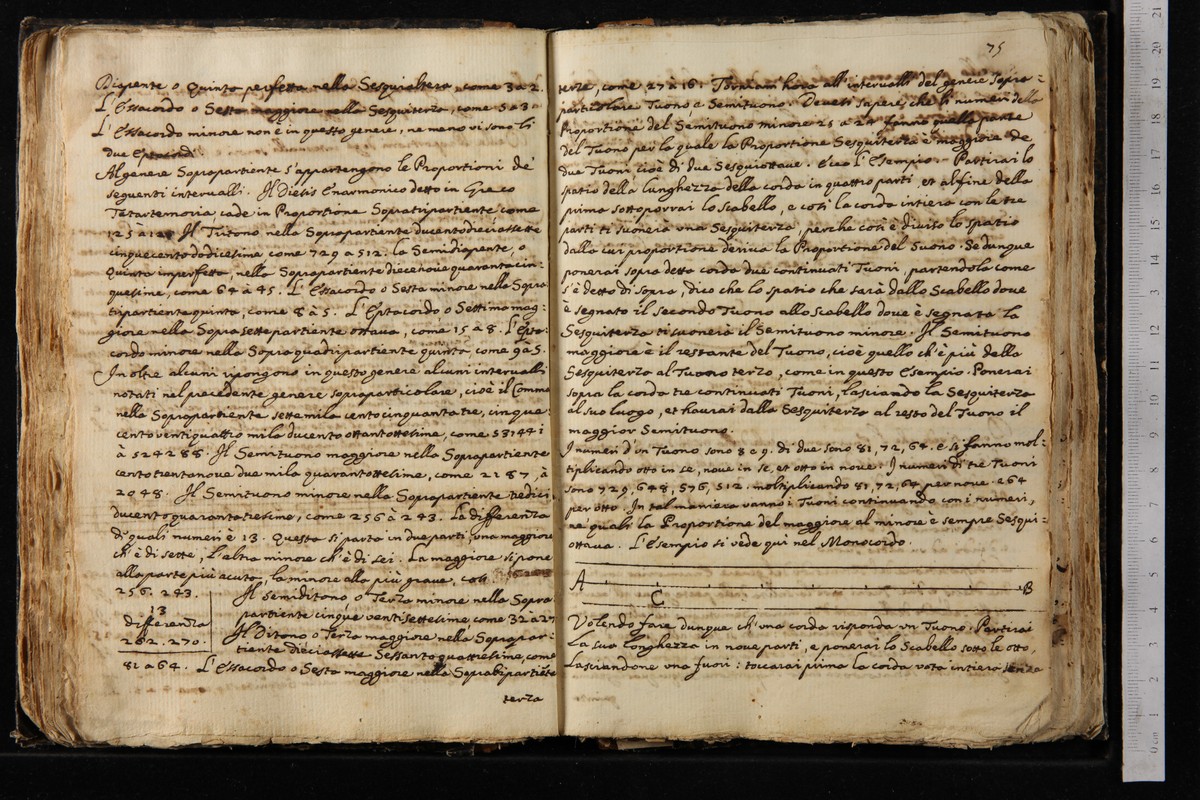 Diapente o Quinto perfetta nella Sesquialtera, come 3 a 2.
L'Essacordo o Sesto maggiore nella Sesquiterza, come 5 a 3.
L'Essacordo minore non è in questo genere, ne meno vi sono li
due Eptacordi.
Al genere Soprapartiente s'appartengono le Proportioni de'
seguenti intervalli. Il Diesis Enarmonico detto in Greco
Tetartemoria cade in Proportione Sopratripartiente come
125 a 128. Il Tritono nella Soprapartiente ducentodieciassette
cinquecentododicesime come 729 a 512. la Semidiapente, o
Quinta imperfetta, nella Soprapartiente diecenoue quarantacin-
quesime, come 64 à 45. L'Essacordo o Sesta minore nella Sopra
tripartiente quinta, come 8 à 5. L'Eptacordo o Settima mag:
giore nella Soprasettepartiente ottaua, come 15 à 8. L'Epta:
cordo minore nella Sopraquadripartiente quinta, come 9 à 5.
In oltre alcuni ripongono in questo genere alcuni intervalli
notati nel precedente genere sopraparticolare, cioè il Comma
nella Soprapartiente settemila cento cinquanta tre, cinque:
cento ventiquattro mila ducento ottantottesime, come 531441
à 524288. Il Semituono maggiore nella Soprapartiente
cento trentanoue due mila quarantottesime, come 2187, à
2048. Il Semituono minore nella Soprapartiente tredici
ducento quarantatresime, come 256 à 243. La differenza
di quali numeri è 13. Questa si parta in due parti, una maggiore
ch'è di sette, l'altra minore ch'è di sei. La maggiore si pone
alla parte più acuta, la minore alla più graue, così
256. 243.
13
differenza
262. 270.
81 a 64.
Il semiditono o Terza minore nella Sopra
partiente cinque ventisettesime, come 32 à 27
Il Ditono o Terza maggiore nella Soprapar:
tiente dieciassette Sessanta quattresime, come
L'Essacordo o Sesta maggiore nella Soprabipartiente
terza
75
terze, come 27 à 16. Torniam hora all'intervalli del genere Sopra:
particolare Tuono, e Semituono. Deuesi sapere, che li numeri della
Proportione del Semituono minore 25 a 24 fanno quella parte
del Tuono per la quale la Proportione Sesquiterza è maggiore de
due Tuoni cioè di due Sesquiottaue. Ecco l'Esempio. Partirai lo
spatio della lunghezza della corda in quattro parti, et al fine della
prima sottoporrai lo scabello, e così la corda intiera con le tre
parti ti suonerà una Sesquiterza, perche così è diuiso lo spatio
dalla cui proportione deriua la Proportione del Suono. Se dunque
ponerai sopra detta corda due continuati Tuoni, partendola come
s'è detto di sopra, dico che lo spatio che sarà dallo Scabello doue
è segnato il secondo Tuono allo Scabello doue è segnata la
Sesquiterza ti suonerà il Semituono minore. Il Semituono
maggiore è il restante del Tuono, cioè quello ch'è più della
Sesquiterza al Tuono terzo, come in questo Esempio. Ponerai
sopra la corda tre continuati Tuoni, lasciando la Sesquiterza
al suo luogo, et haurai dalla Sesquiterza al resto del Tuono il
maggior Semituono.
I numeri d'un Tuono sono 8 e 9. di due sono 81, 72, 64. e si fanno mol:
tiplicando otto in se, noue in se, et otto in noue. I numeri di tre Tuoni
sono 729, 648, 576, 512. moltiplicando 81, 72, 64 per noue. e 64
per otto. In tal maniera vanno i Tuoni continuando con i numeri,
ne quali la Proportione del maggiore al minore è sempre Sesqui:
ottaua. L'Esempio si vede quì nel Monocordo.
A
C
B
Volendo fare dunque ch'una corda risponda un Tuono. Partirai
la sua longhezza in noue parti, e ponerai lo Scabello sotto le otto,
lasciandone una fuori: toccarai prima la corda vota intiera senza